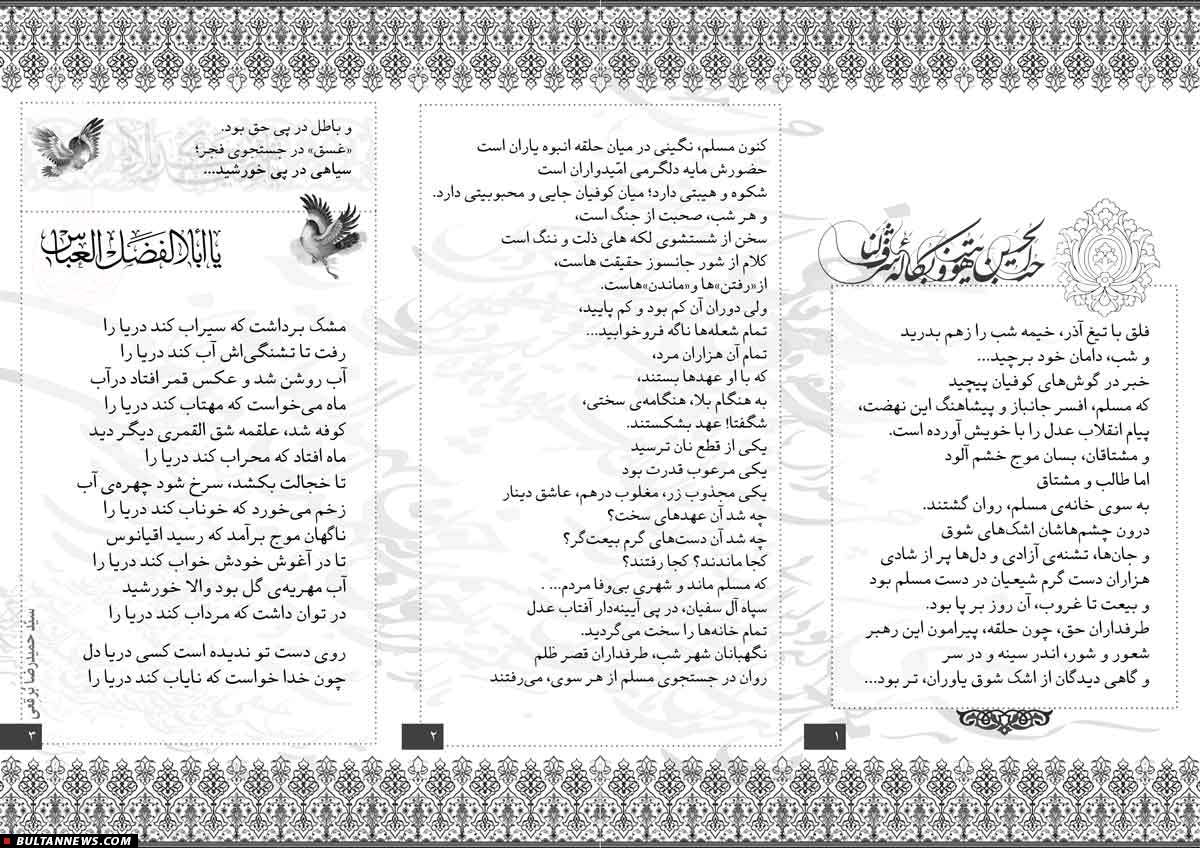 فلق با تیغ آذر، خیمه شب را زهم بدرید
و شب، دامان خود برچید...
خبر در گوش‌های کوفیان پیچید
که مسلم، افسر جانباز و پیشاهنگ این نهضت،
پیام انقلاب عدل را با خویش آورده است.
و مشتاقان، بسان موج خشم آلود
اما طالب و مشتاق
به سوی خانه‌ی مسلم، روان گشتند.
درون چشم‌هاشان اشک‌های شوق
و جان‌ها، تشنه‌ی آزادی و دل‌ها پر از شادی
هزاران دست گرم شیعیان در دست مسلم بود
و بیعت تا غروب، آن روز بر پا بود.
طرفداران حق، چون حلقه، پیرامون این رهبر
شعور و شور، اندر سینه و در سر
و گاهی دیدگان از اشک شوق یاوران، تر بود...
۱
کنون مسلم، نگینی در میان حلقه انبوه یاران است
حضورش مایه دلگرمی امّیدواران است
شکوه و هیبتی دارد؛ میان کوفیان جایی و محبوبیتی دارد.
و هر شب، صحبت از جنگ است،
سخن از شستشوی لکه های ذلت و ننگ است
کلام از شور جانسوز حقیقت هاست،
از«رفتن»ها و«ماندن»هاست.
ولی دوران آن کم بود و کم پایید،
تمام شعله‌ها ناگه فروخوابید...
تمام آن هزاران مرد،
که با او عهدها بستند،
به هنگام بلا، هنگامه‌ی سختی،
شگفتا! عهد بشکستند.
یکی از قطع نان ترسید
یکی مرعوب قدرت بود
یکی مجذوب زر، مغلوب درهم، عاشق دینار
چه شد آن عهدهای سخت؟
چه شد آن دست‌های گرم بیعت‌گر؟
کجا ماندند؟ کجا رفتند؟
که مسلم ماند و شهری بی‌وفا مردم... .
سپاه آل سفیان، در پی آیینه‌دار آفتاب عدل
تمام خانه‌ها را سخت می‌گردید.
نگهبانان شهر شب، طرفداران قصر ظلم
روان در جستجوی مسلم از هر سوی، می‌رفتند
۲
و باطل در پی حق بود.
«غسق» در جستجوی فجر؛
سیاهی در پی خورشید...
یا اباالفضل العباس
مشک برداشت که سیراب کند دریا را
رفت تا تشنگی‌اش آب کند دریا را
آب روشن شد و عکس قمر افتاد درآب
ماه می‌خواست که مهتاب کند دریا را
کوفه شد، علقمه شق القمری دیگر دید
ماه افتاد که محراب کند دریا را
تا خجالت بکشد، سرخ شود چهره‌ی آب
زخم می‌خورد که خوناب کند دریا را
ناگهان موج برآمد که رسید اقیانوس
تا در آغوش خودش خواب کند دریا را
آب مهریه‌ی گل بود والا خورشید
در توان داشت که مرداب کند دریا را
روی دست تو ندیده است کسی دریا دل
چون خدا خواست که نایاب کند دریا را
سید حمیدرضا برقعی
۳
BULTANNEWS.COM